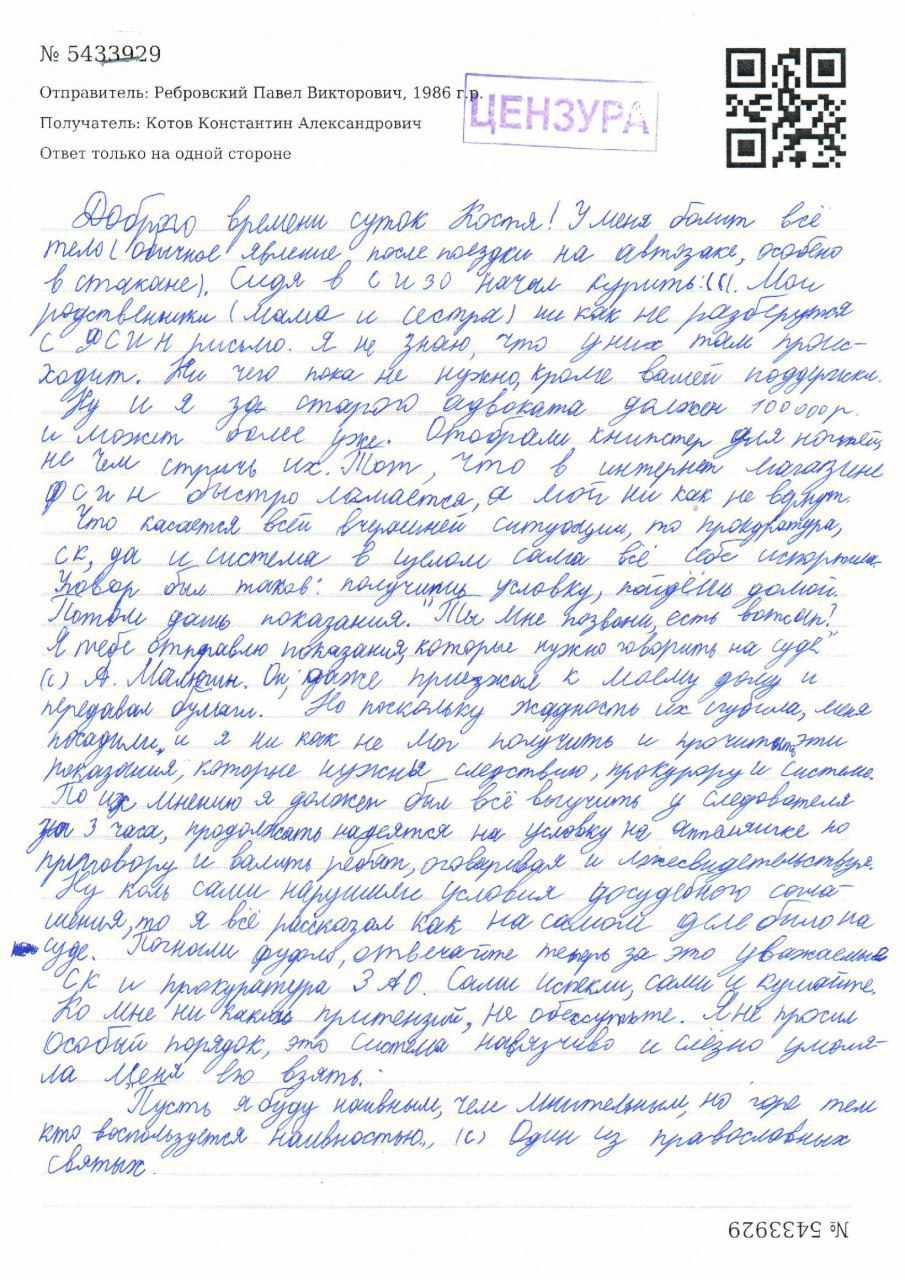 № 5433929
Отправитель: Ребровский Павел Викторович, 1986 г.р.
ЦЕНЗУРА
Получатель: Котов Константин Александрович
Ответ только на одной стороне
Доброго времени суток Костя! У меня болит всё
тело (обычное явление после поездки на автозаке, особено
в стакане). Сидя в сизо начал курить:(((. Мои
родственники (мама и сестра) ни как не разберутся
с ФСИН письмо. Я не знаю, что у них там проис-
ходит. Ни чего пока не нужно, кроме вашей поддержки.
Ну и я за старого адвоката должен 100000р.
и может более уже. Отобрали книпсер для ногтей,
не чем стричь их. Тот, что в интернет магазине
ФСИН быстро ламается, а мой ни как не вернут.
Что касается всей вчерашней ситуации, то прокуратура,
СК, да и система в целом сама всё себе испортила.
Уговор был таков: получишь условку, пойдёшь домой.
Потом дашь показания. "Ты мне позвони, есть ватсап?
Я тебе отправлю показания, которые нужно говорить на суде"
(с) А. Малюгин. Он, даже приезжал к моему дому и
передавал бумаги. Но поскольку жадность их сгубила, меня
посадили, и я ни как не мог получить и прочитать эти
показания, которые нужны следствию, прокурору и системе.
По их мнению я должен был всё выучить у следователя
за 3 часа, продолжать надеятся на условку на аппаляшке по
приговору и валить ребят, оговаривая и лжесвидетельствуя.
Ну коль сами нарушили условия досудебного согла-
шения, то я всё рассказал как на самом деле было на
суде. Погнали фуфло, отвечайте теперь за это уважаемые
СК и прокуратура ЗАО. Сами испекли, сами и кушайте.
Ко мне ни каких притензий, не обессутьте. Я не просил
Особый порядок, это система навязчиво и слёзно умоля-
ла меня его взять.
"Пусть я буду наивным, чем мнительным, но горе тем
кто воспользуется наивностью" (с) Один из православных
святых.
№ 5433929